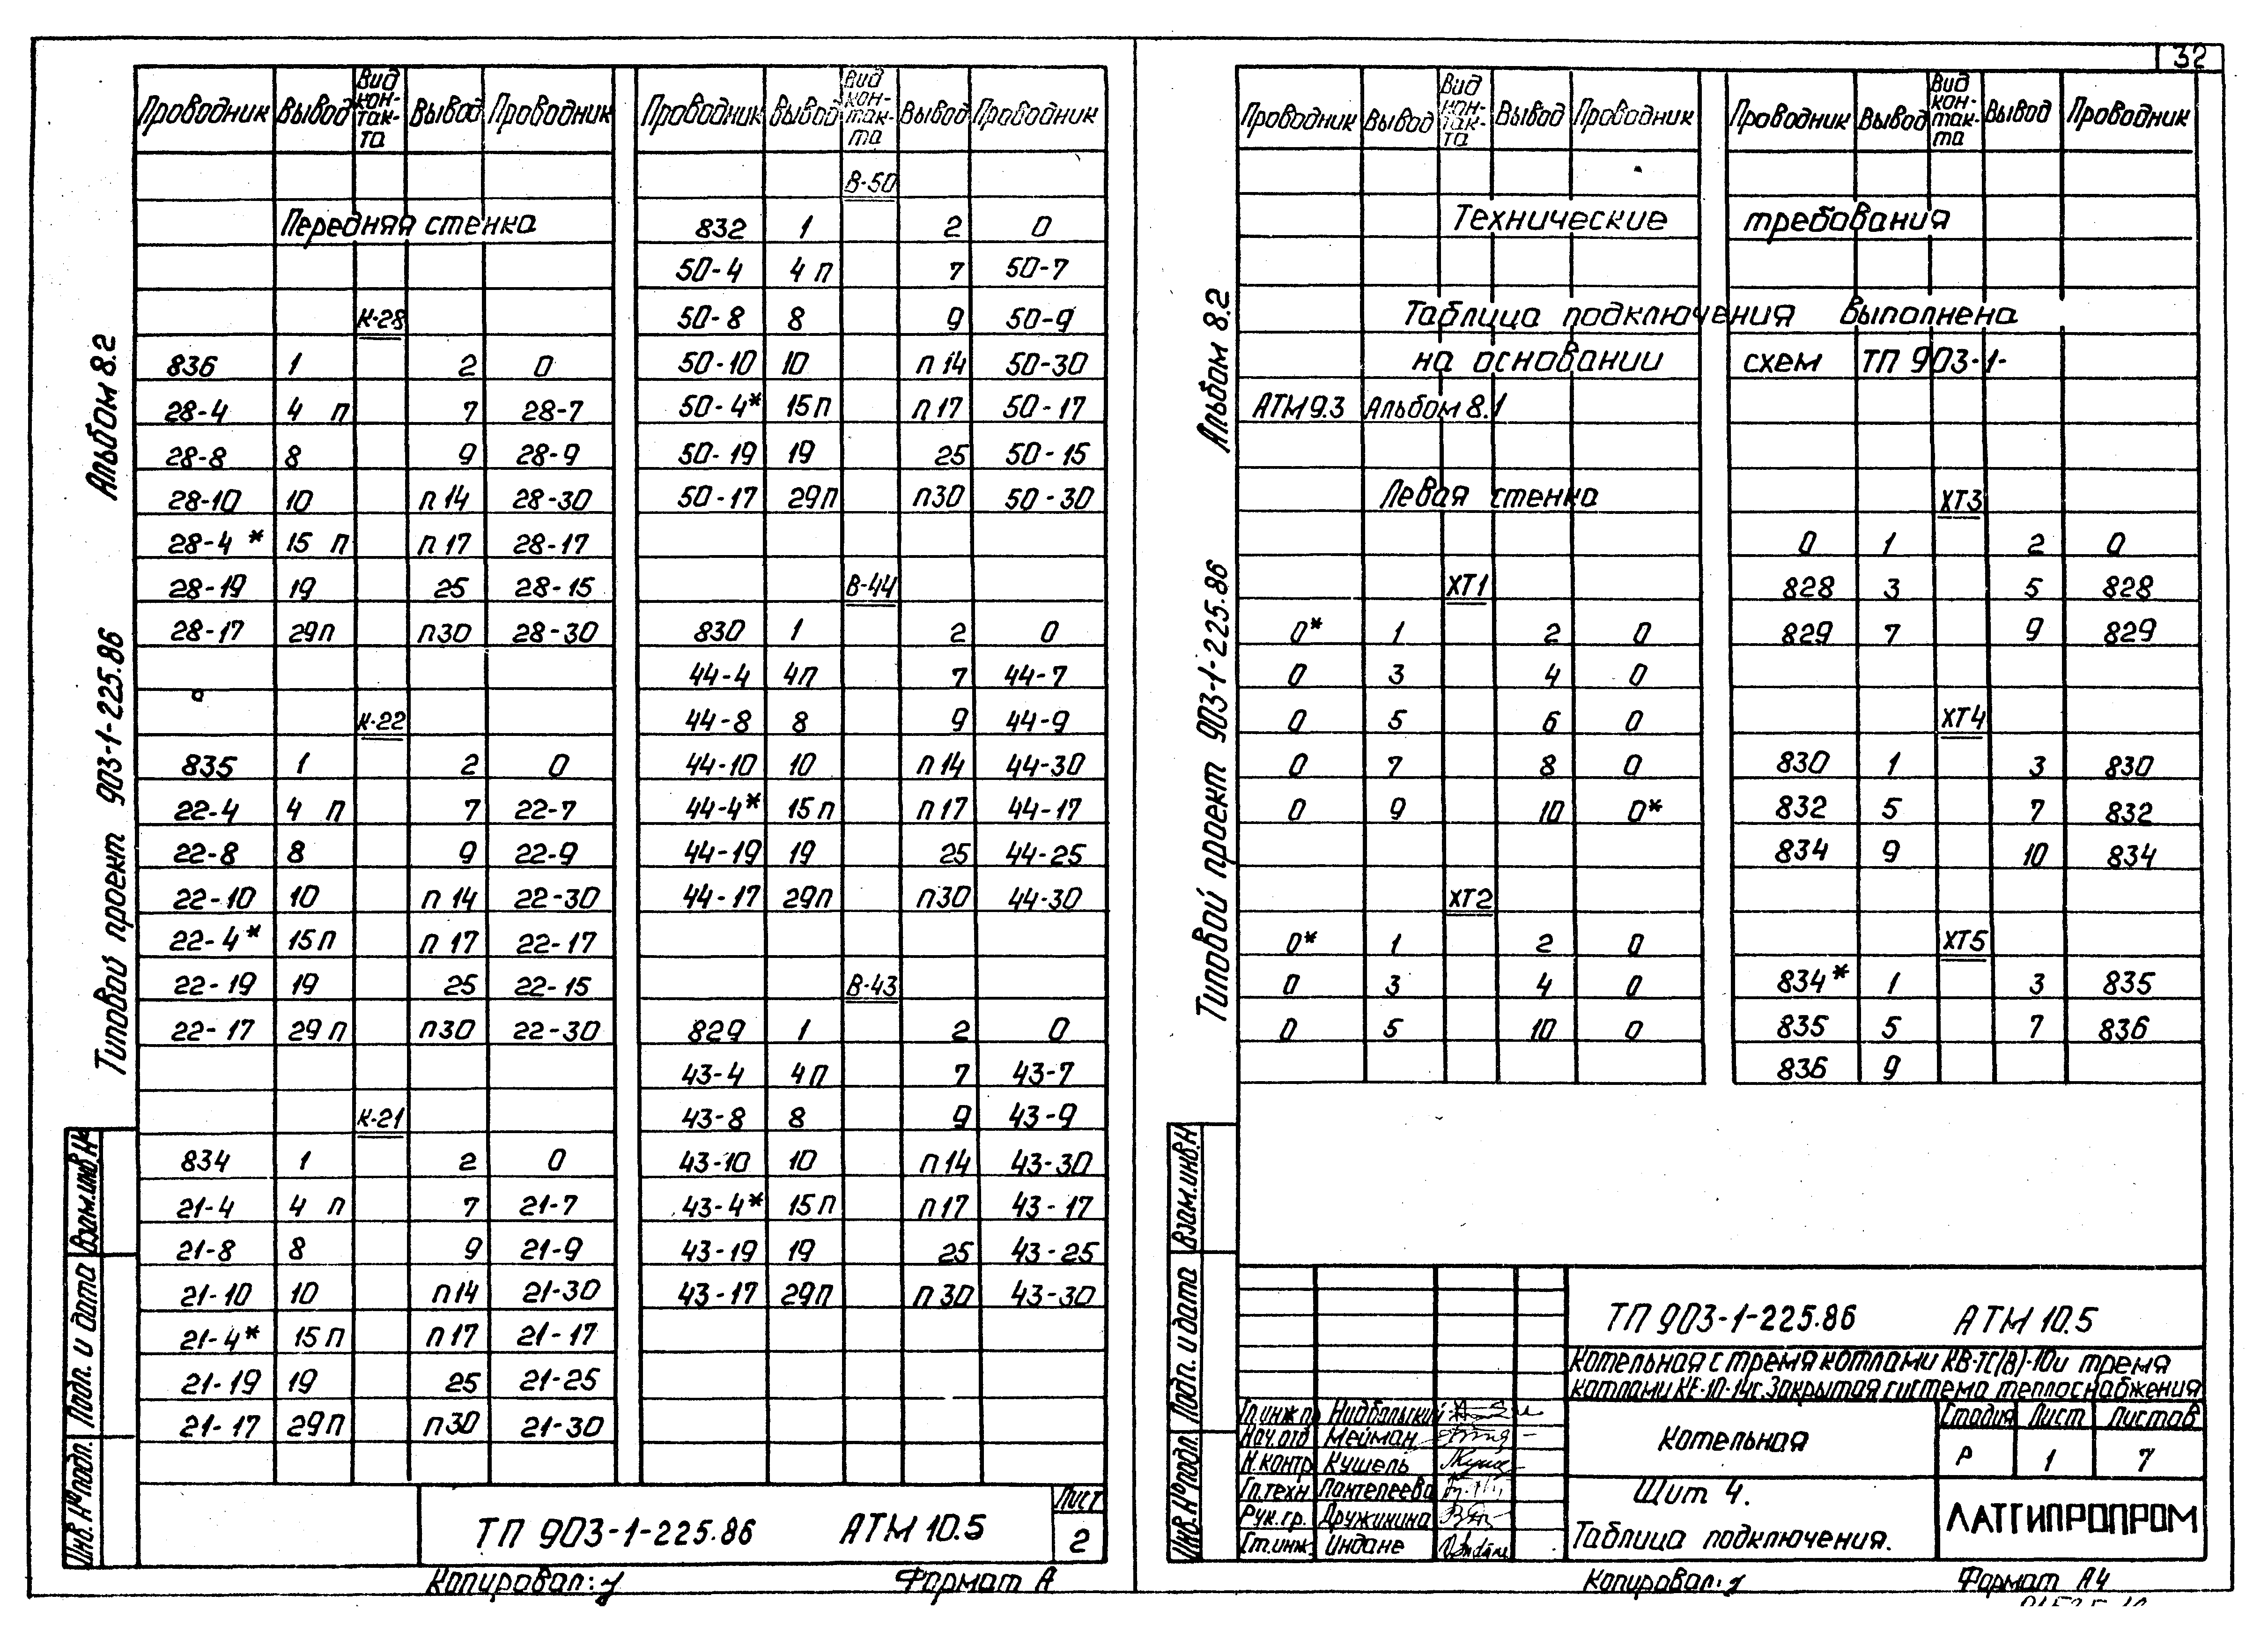 32
Альбом 8.2
Типовой проект 903-1-225.86
Взам.инв.N
Подп. и дата
Инв.N°подл.
Проводник Вывод Вид кон-так-та Вывод Проводник
Передняя стенка
К-28
836 1 2 0
28-4 4 п 7 28-7
28-8 8 9 28-9
28-10 10 п 14 28-30
28-4* 15 п п 17 28-17
28-19 19 25 28-15
28-17 29п п30 28-30
К-22
835 1 2 0
22-4 4 п 7 22-7
22-8 8 9 22-9
22-10 10 п 14 22-30
22-4* 15п п 17 22-17
22-19 19 25 22-15
22-17 29 п п30 22-30
К-21
834 1 2 0
21-4 4 п 7 21-7
21-8 8 9 21-9
21-10 10 п14 21-30
21-4* 15 п п17 21-17
21-19 19 25 21-25
21-17 29п п30 21-30
Проводник Вывод Вид кон-так-та Вывод Проводник
В-50
832 1 2 0
50-4 4 п 7 50-7
50-8 8 9 50-9
50-10 10 п 14 50-30
50-4* 15п п17 50-17
50-19 19 25 50-15
50-17 29п п30 50-30
В-44
830 1 2 0
44-4 4п 7 44-7
44-8 8 9 44-9
44-10 10 п14 44-30
44-4* 15п п17 44-17
44-19 19 25 44-25
44-17 29п п30 44-30
В-43
829 1 2 0
43-4 4п 7 43-7
43-8 8 9 43-9
43-10 10 п14 43-30
43-4* 15п п17 43-17
43-19 19 25 43-25
43-17 29п п30 43-30
ТП 903-1-225.86 АТМ 10.5
Лист
2
Копировал:
Формат А
Альбом 8.2
Типовой проект 903-1-225.86
Взам.инв.N
Подп. и дата
Инв.N°подл.
Проводник Вывод Вид кон-так-та Вывод Проводник
Проводник Вывод Вид кон-так-та Вывод Проводник
Технические требования
Таблица подключения выполнена
на основании схем ТП 903-1-
АТМ9.3 Альбом 8.1
Левая стенка
ХТ1
0* 1 2 0
0 3 4 0
0 5 6 0
0 7 8 0
0 9 10 0*
ХТ2
0* 1 2 0
0 3 4 0
0 5 10 0
ХТ3
0 1 2 0
828 3 5 828
829 7 9 829
ХТ4
830 1 3 830
832 5 7 832
834 9 10 834
ХТ5
834* 1 3 835
835 5 7 836
836 9
ТП 903-1-225.86 АТМ 10.5
Котельная с тремя котлами КВ-ТС(В)-10и тремя
котлами КЕ-10-14с.Закрытая система теплоснабжения
Гл.инж.п. Нидбальский
Нач.отд Мейман
Н.контр Кушель
Гл.техн Пантелеева
Рук.гр. Дружинина
Ст.инж Индане
Котельная
Стадия Лист Листов
Р 1 7
Щит 4.
Таблица подключения.
ЛАТГИПРОПРОМ
Копировал:
Формат А4